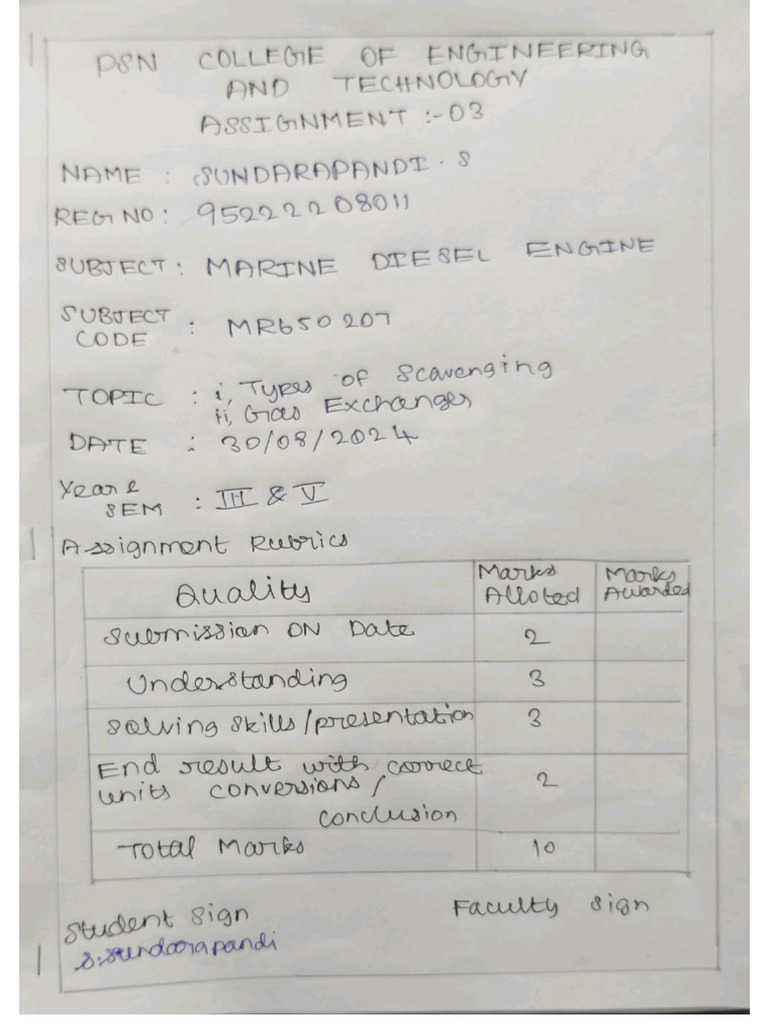 PSN COLLEGE OF ENGINEERING
AND TECHNOLOGY
ASSIGNMENT :-03
NAME : SUNDARAPANDI. S
REG NO: 952222208011
SUBJECT: MARINE DIESEL ENGINE
SUBJECT
CODE : MR650207
TOPIC : i, Types of Scavenging
ii, Gas Exchanges
DATE : 30/08/2024
Year &
SEM : III & V
Assignment Rubrics
Quality Marks Alloted Marks Awarded
Submission ON Date 2
Understanding 3
Solving Skills/presentation 3
End result with correct
units conversions/ 2
conclusion
Total Marks 10
Student Sign Faculty Sign
S.Sundarapandi